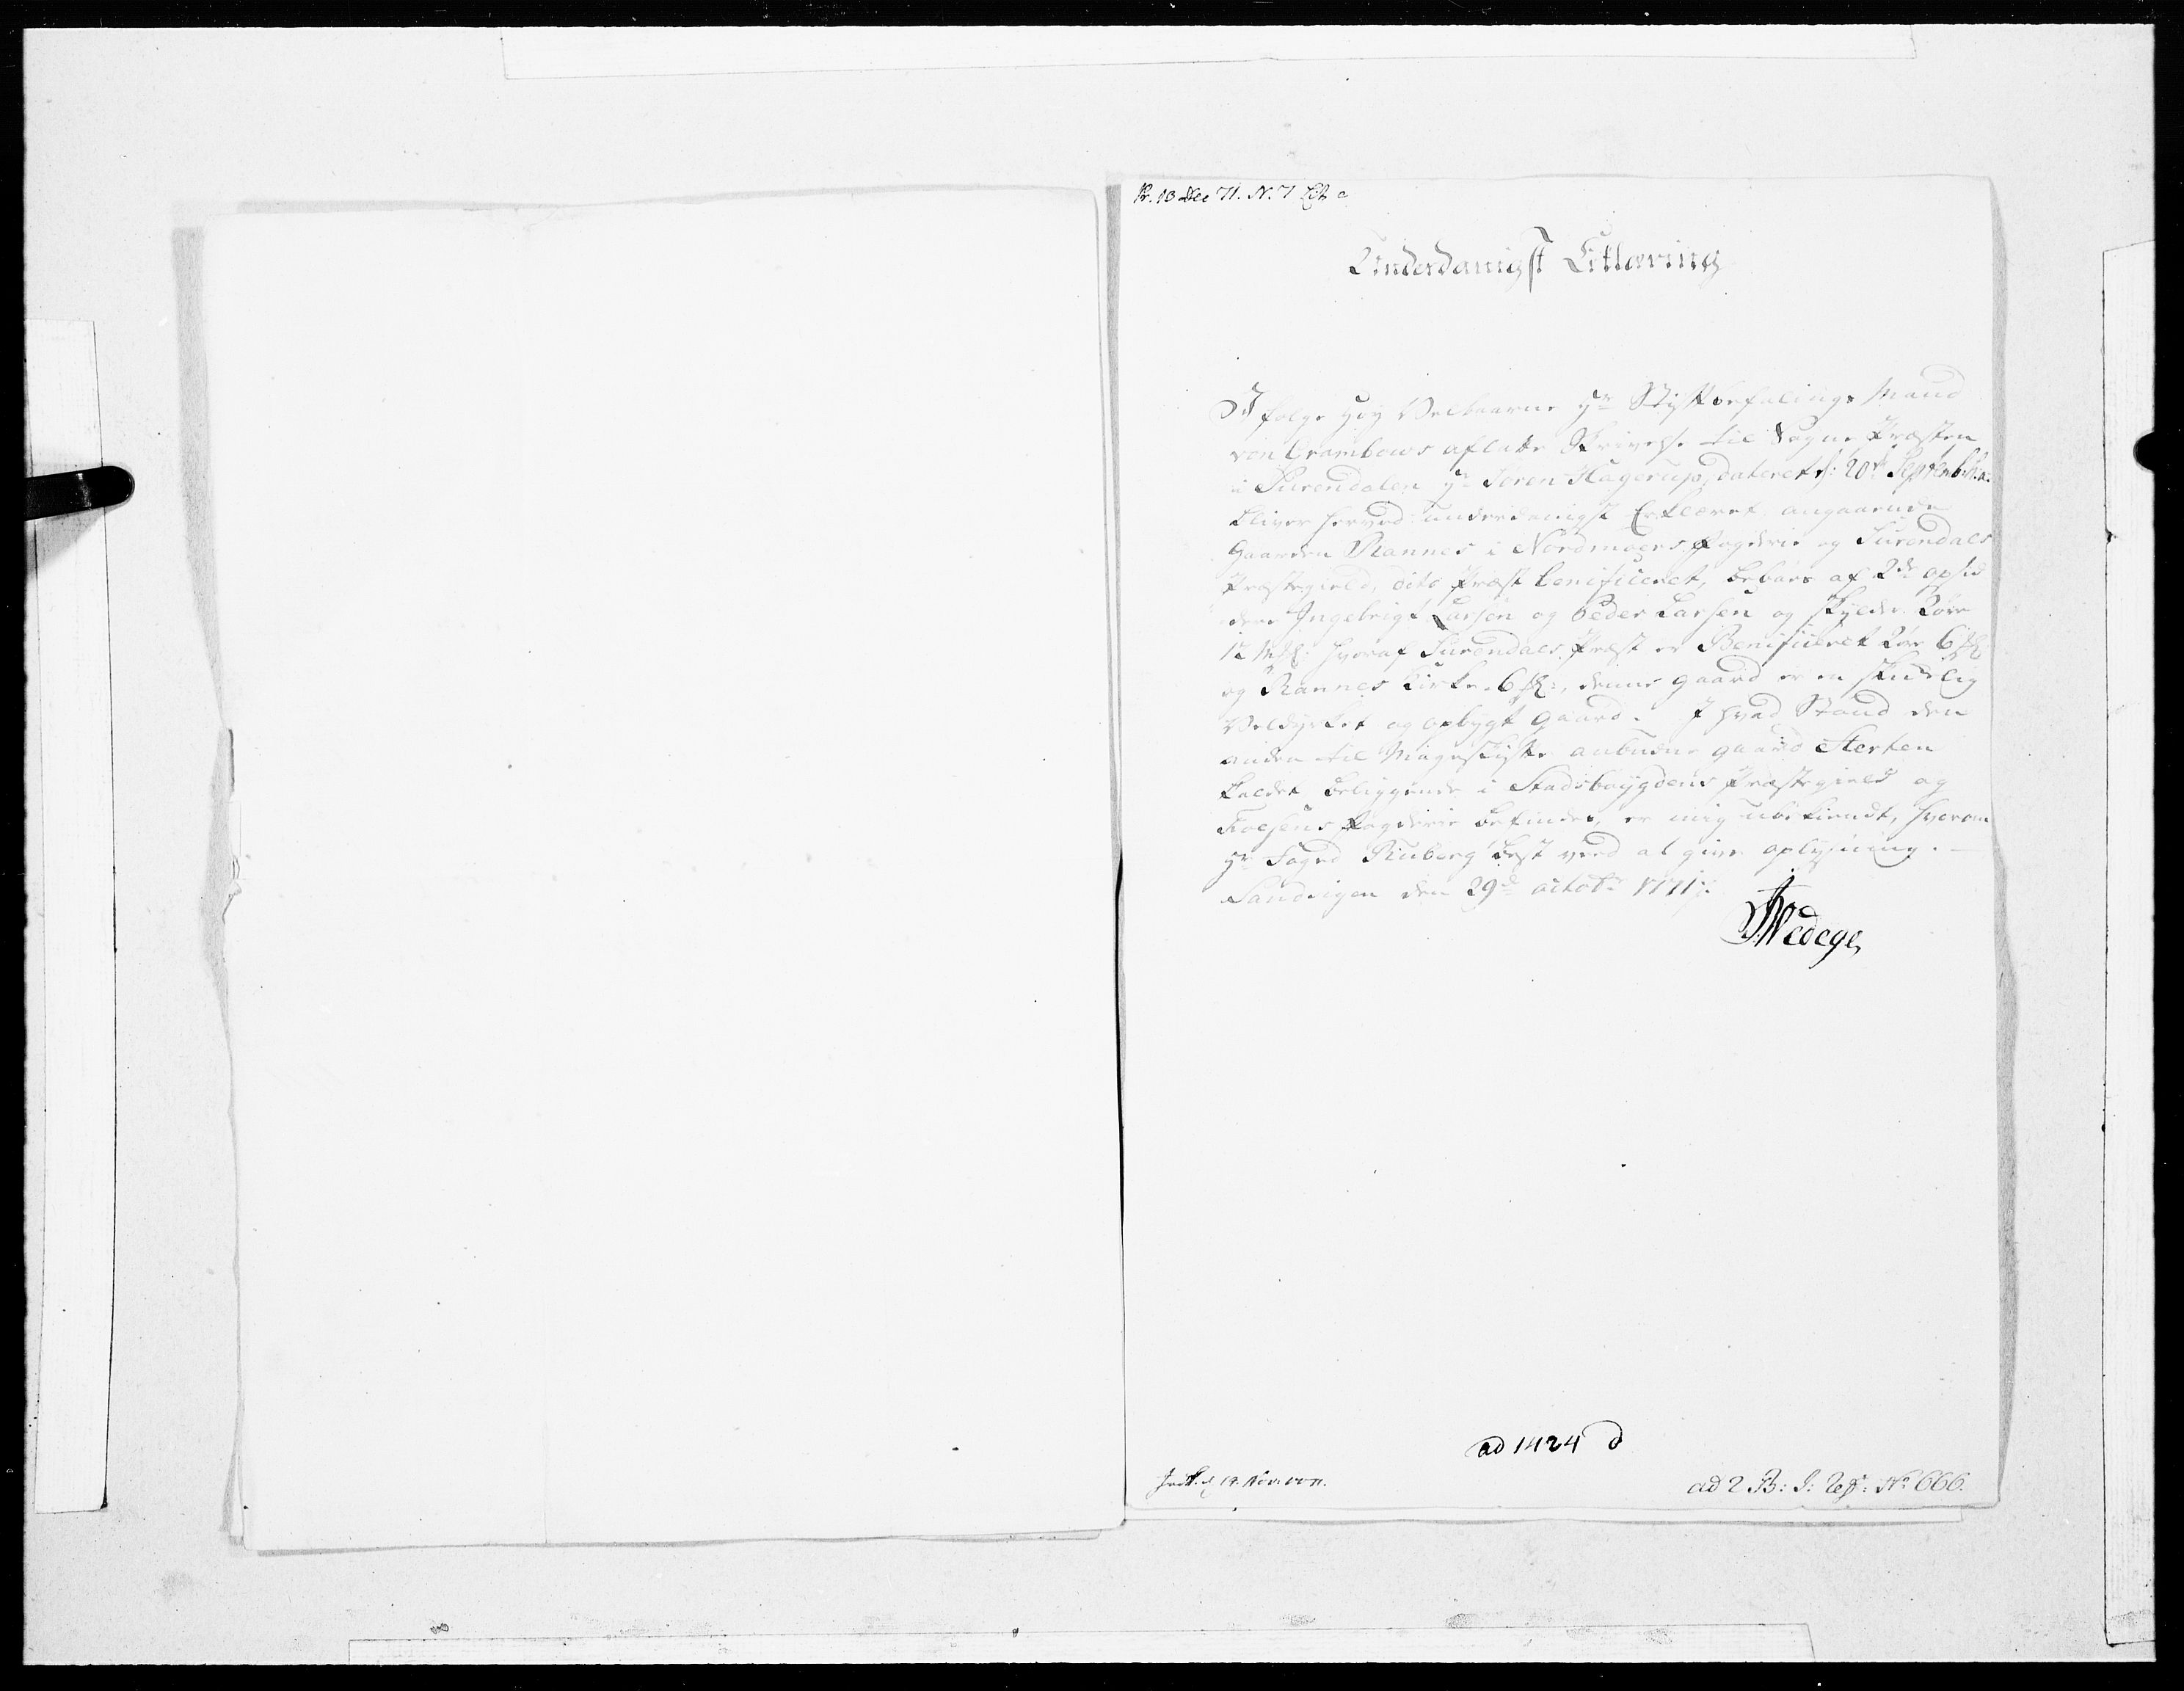 Pr. 13 Dec 71. N. 7 Lit c
Underdanigst Erklæring
I følge høy Velbaarne Hr Stiftbefalings Mand
von Crambows aflatte Skrivelse til Sogne Præsten
i Surendalen Hr Søren Hagerup, dateret d: 20de Septembr:
bliver herved underdanigst Erklæret angaaende
Gaarden Rannes i Nordmøers Fogderie og Surendals
Præstegield, dito Præst Benificieret, beboes af 2de opsid
dere Ingebrigt Larsen og Peder Larsen og skylder
12 hvoraf Surendals Præst er Benificieret 6
og Rannes Kirke 6 denne Gaard er en skickelig
Veldyrket og opbygt Gaard. I hvad Stand den
anden til Mageskifte anbudne gaard Sterten
kaldet beliggende i Stadsbøygdens Præstegield og
Foesens Fogderie befindes, er mig ubekiendt, hvorom
Hr Foged Riuberg best veed at give oplysning. —
Sandvigen den 29de octobr 1771.
Wedege
ad 1424 d
14. Nov. 1771.
ad 2 B: J: No 666.